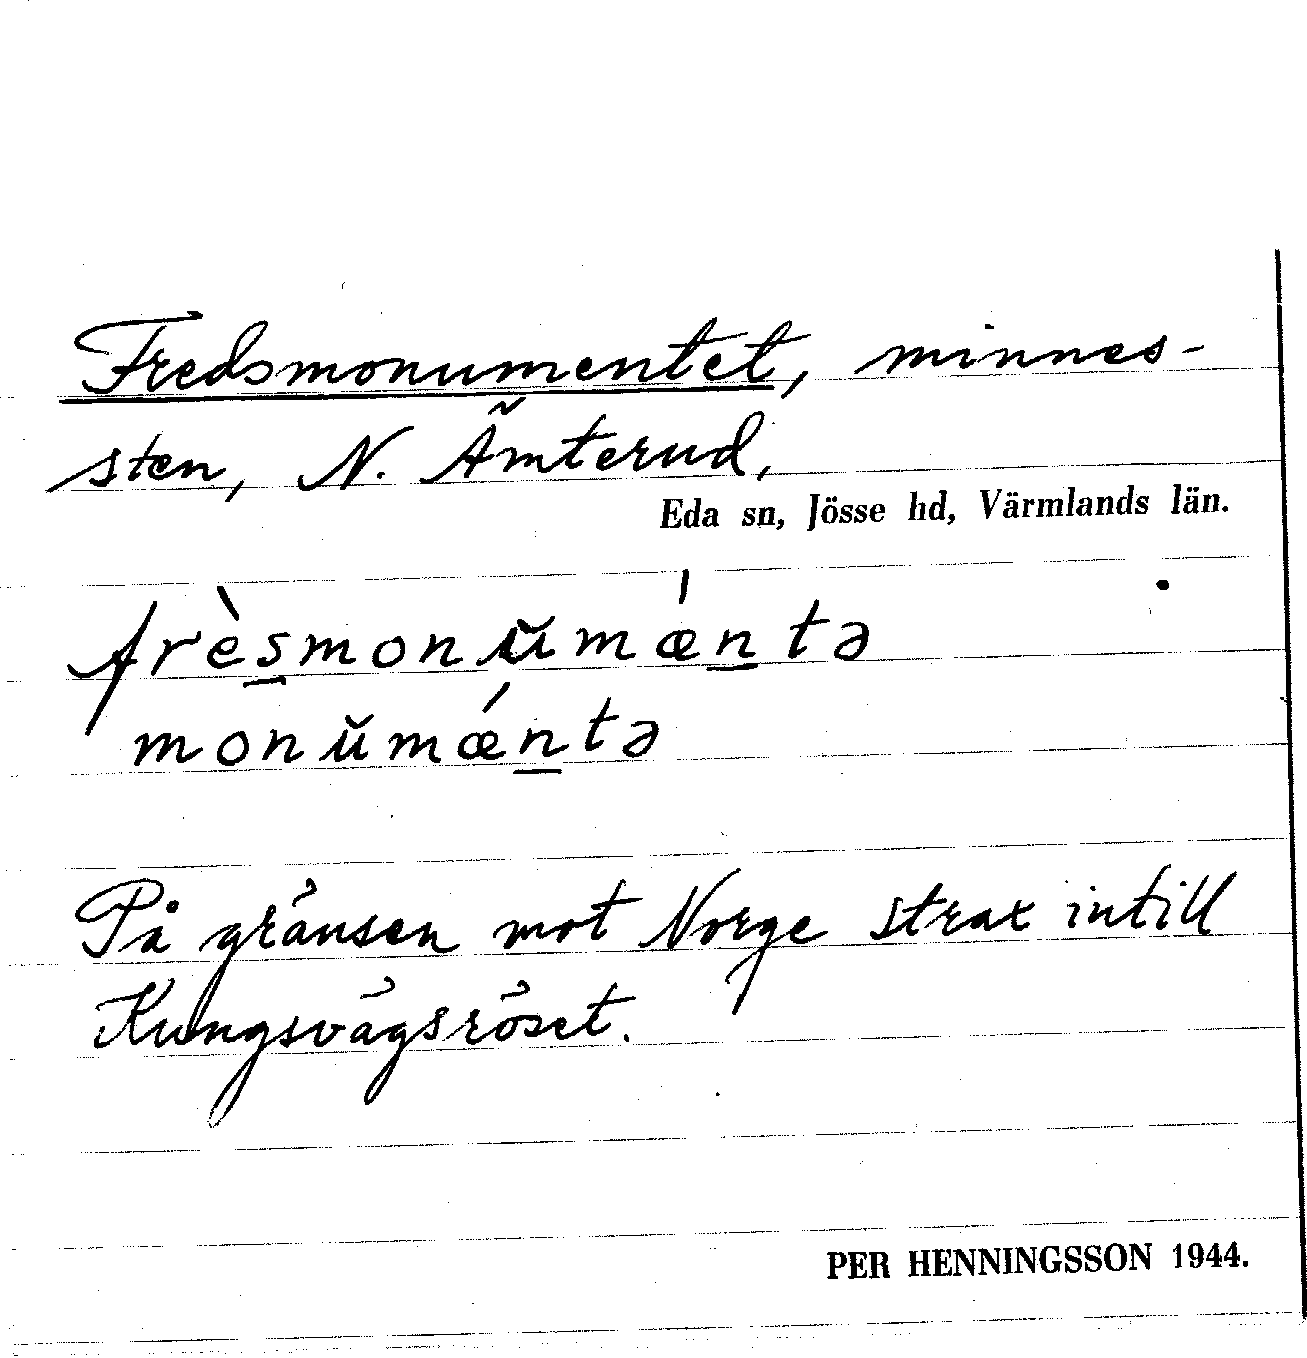 Fredsmonumentet, minnes-
sten, N. Ämterud,
Eda sn, Jösse hd, Värmlands län.
frèsmonŭmǽntə
monŭmǽntə
På gränsen mot Norge strax intill
Kungsvägsröset.
PER HENNINGSSON 1944.